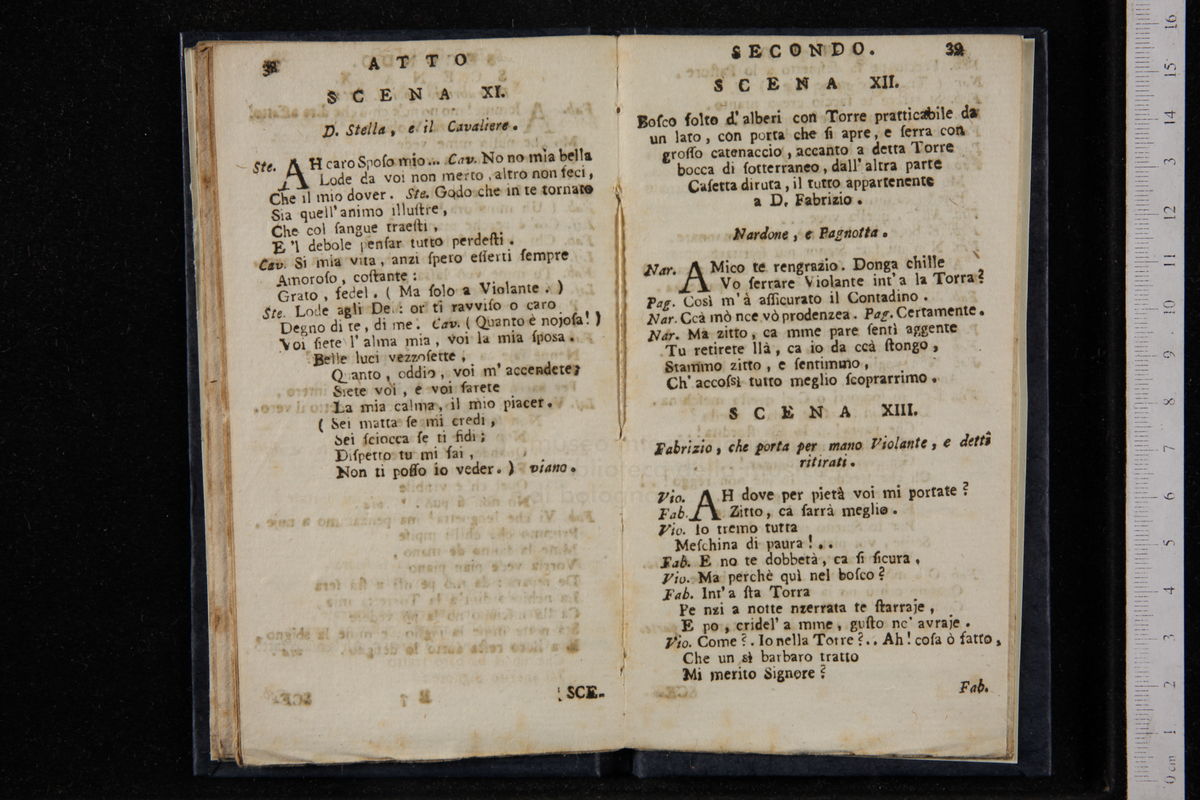 38
ATTO
SCENA XI.
D. Stella, e il Cavaliere.
Ste. AH caro Sposo mio... Cav. No no mia bella
Lode da voi non merto, altro non feci,
Che il mio dover. Ste. Godo che in te tornato
Sia quell'animo illuſtre,
Che col ſangue traeſti,
E 'l debole penſar tutto perdeſti.
Cav. Si mia vita, anzi ſpero eſſerti ſempre
Amoroſo, coſtante:
Grato, fedel. ( Ma ſolo a Violante. )
Ste. Lode agli Dei: or ti ravviſo o caro
Degno di te, di me. Cav. ( Quanto è nojoſa! )
Voi ſiete l'alma mia, voi la mia ſpoſa.
Belle luci vezzoſette,
Quanto, oddio, voi m'accendete;
Siete voi, e voi ſarete
La mia calma, il mio piacer.
( Sei matta ſe mi credi,
Sei ſciocca ſe ti fidi;
Diſpetto tu mi fai,
Non ti poſſo io veder. ) viano.
SCE-
SECONDO. 39
SCENA XII.
Boſco folto d'alberi con Torre pratticabile da
un lato, con porta che ſi apre, e ſerra con
groſſo catenaccio, accanto a detta Torre
bocca di ſotterraneo, dall'altra parte
Caſetta diruta, il tutto appartenente
a D. Fabrizio.
Nardone, e Pagnotta.
Nar. AMico te rengrazio. Donga chille
Vo ſerrare Violante int'a la Torra?
Pag. Così m'à aſſicurato il Contadino.
Nar. Ccà mò nce vò prodenzea. Pag. Certamente.
Nar. Ma zitto, ca mme pare ſentì aggente
Tu retirete llà, ca io da ccà ſtongo,
Stammo zitto, e ſentimmo,
Ch'accoſsì tutto meglio ſcoprarrimo.
SCENA XIII.
Fabrizio, che porta per mano Violante, e detti
ritirati.
Vio. AH dove per pietà voi mi portate?
Fab. Zitto, ca ſarrà meglio.
Vio. Io tremo tutta
Meſchina di paura!..
Fab. E no te dobbetà, ca ſi ſicura,
Vio. Ma perchè quì nel boſco?
Fab. Int'a ſta Torra
Pe nzi a notte nzerrata te ſtarraje,
E po, cridel'a mme, guſto nc'avraje.
Vio. Come?. Io nella Torre?.. Ah! coſa ò fatto,
Che un sì barbaro tratto
Mi merito Signore?
Fab.